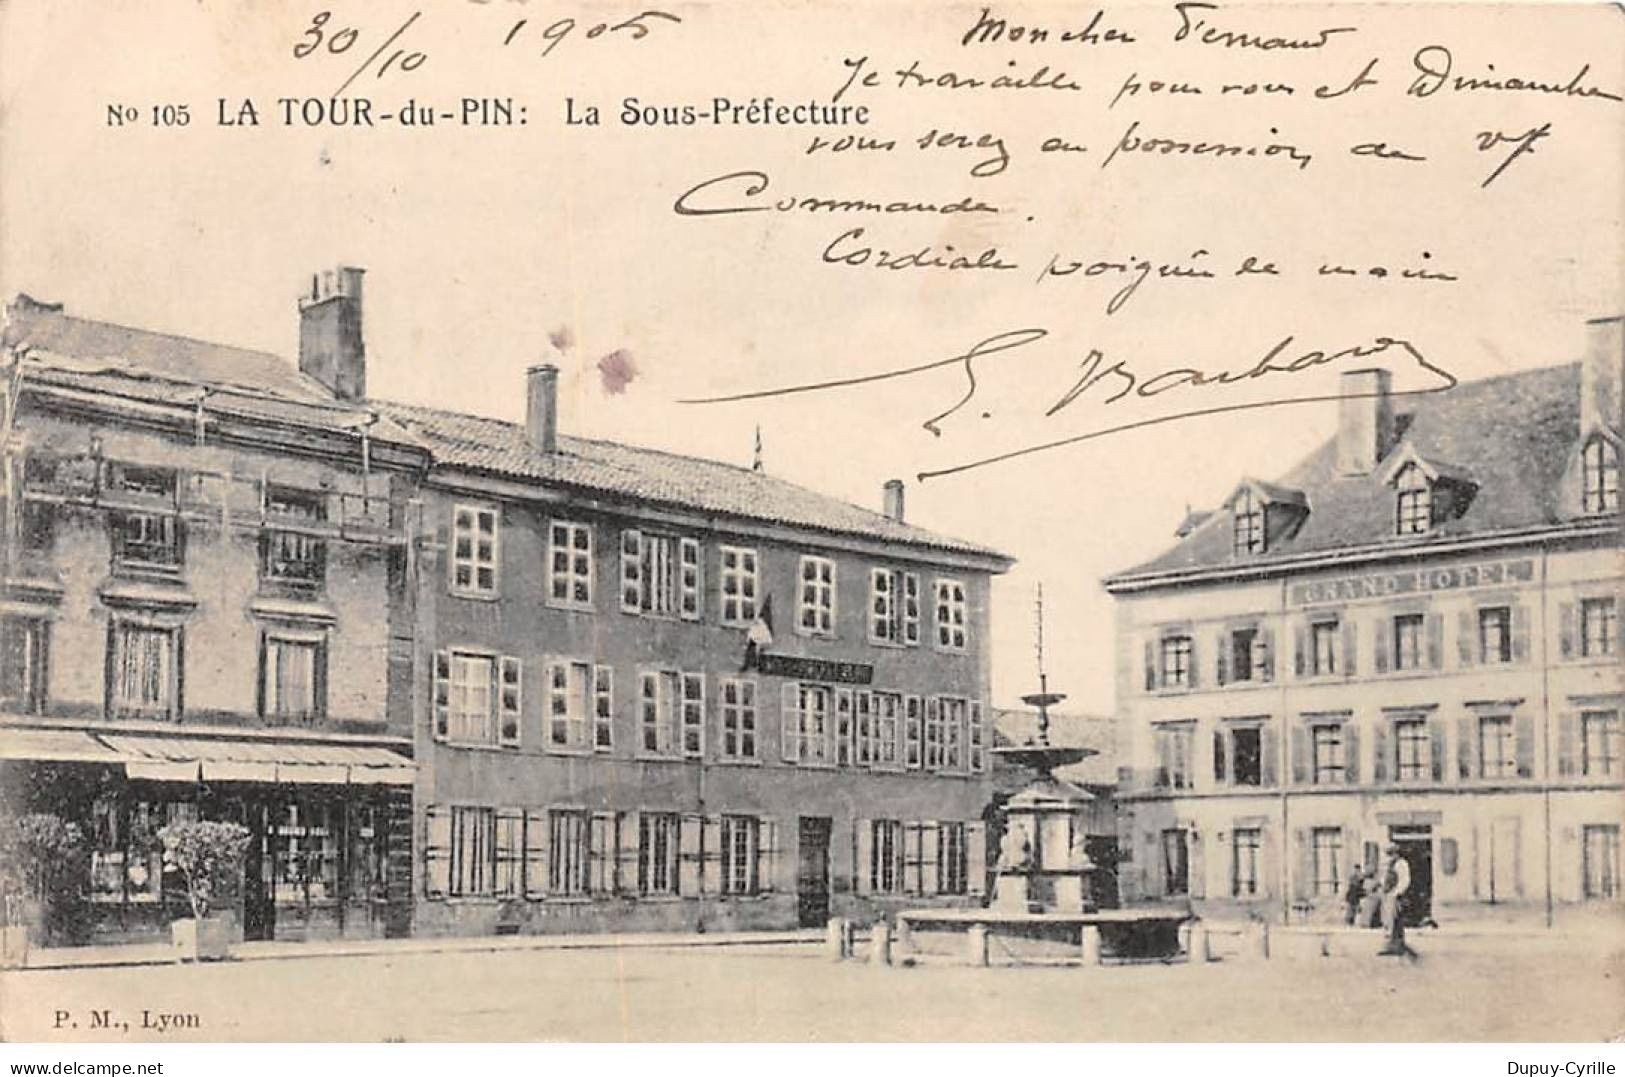 30/10 1905
Mon cher Fernand
Je travaille pour vous et Dimanche
No 105 LA TOUR-du-PIN: La Sous-Préfecture
vous serez en possession de vf
Commande.
Cordiale poignée de main
GRAND HOTEL
P. M., Lyon
www.delcampe.net
Dupuy-Cyrille